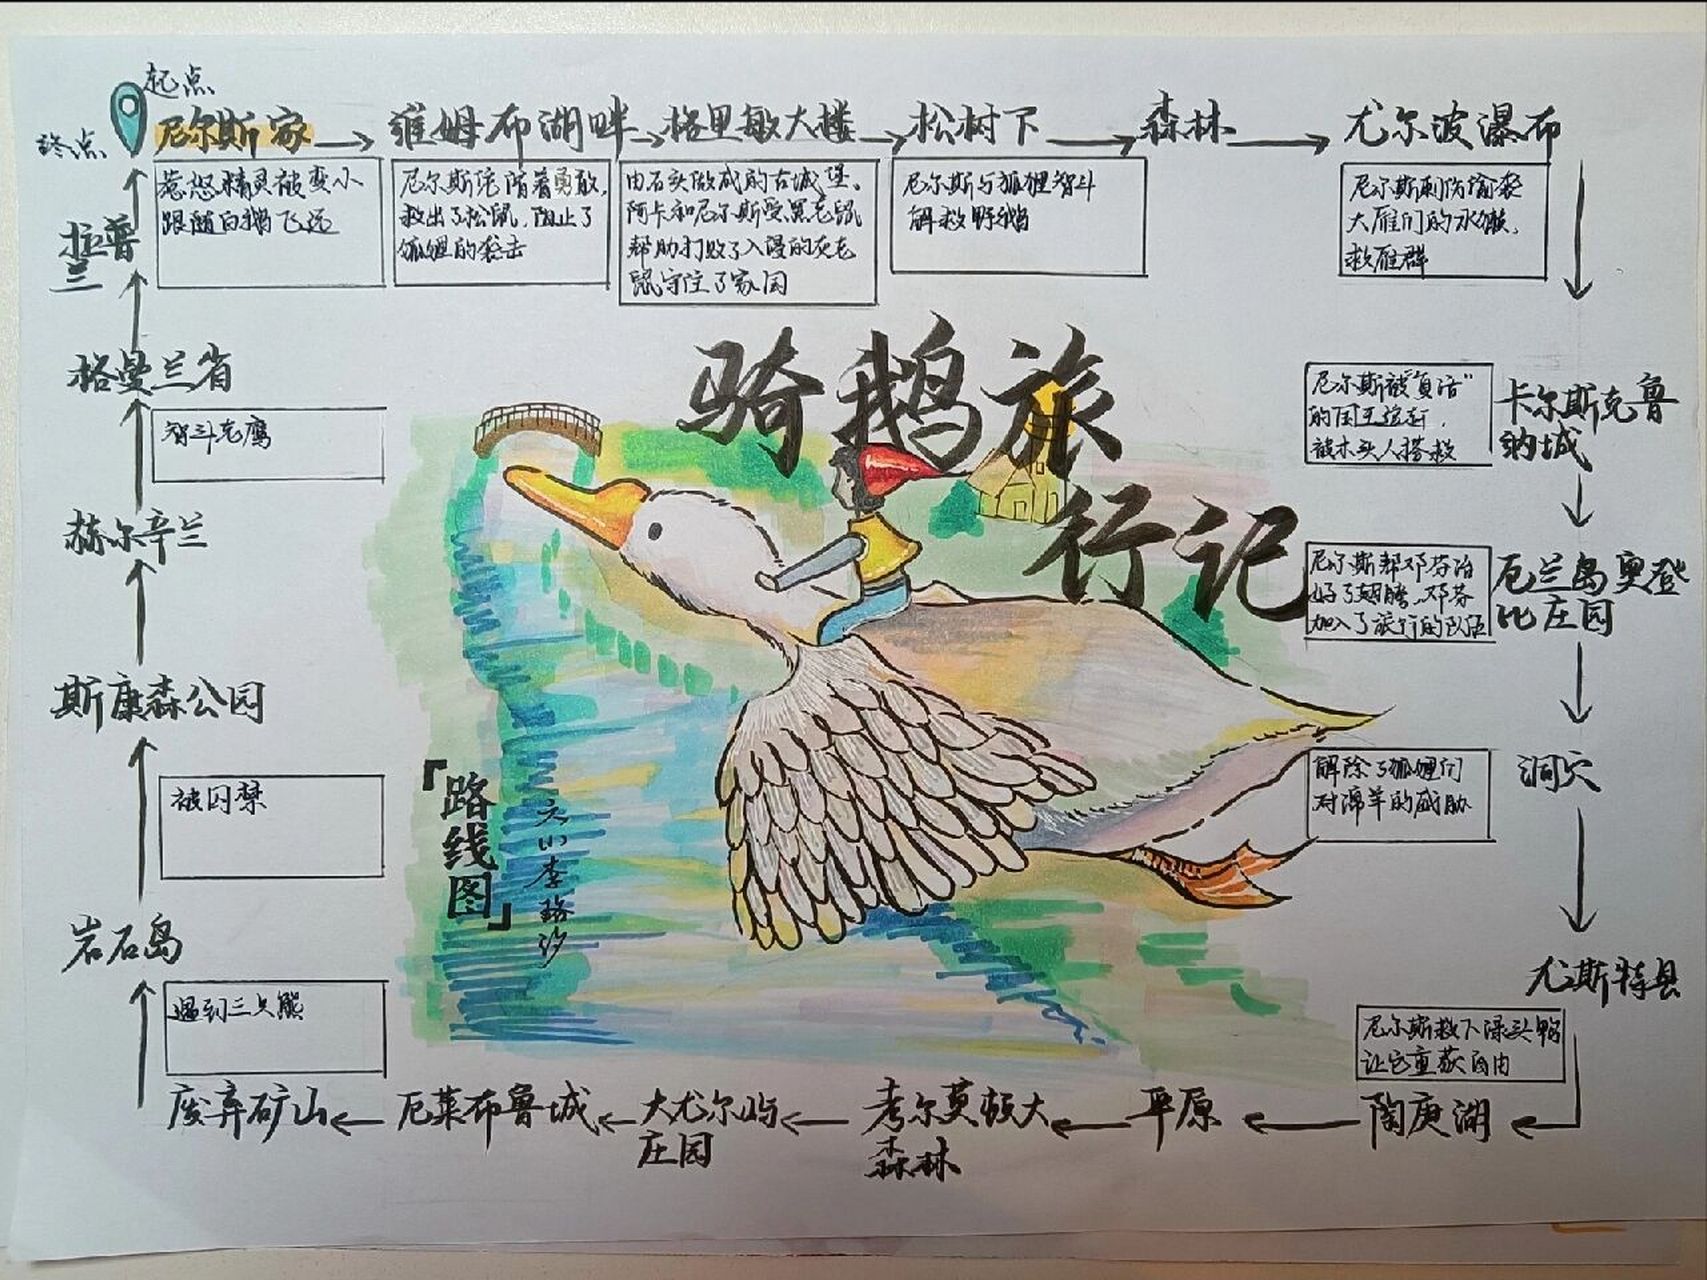 起点
终点
尼尔斯家
维姆布湖畔
格里敏大楼
松树下
森林
尤尔波瀑布
惹怒精灵被变小
跟随白鹅飞远
尼尔斯凭随着勇敢,
救出了松鼠,阻止了
狐狸的袭击
由石头做成的古城堡、
阿卡和尼尔斯受黑老鼠
帮助打败了入侵的灰老
鼠守住了家园
尼尔斯与狐狸智斗
解救野鹅
尼尔斯刺伤偷袭
大雁们的水獭,
救雁群
骑鹅旅
行记
「路线图」
六小李
汐
尼尔斯被"复活"
的国王追赶,
被木头人搭救
卡尔斯克鲁
纳城
尼尔斯帮邓芬治
好了翅膀,邓芬
加入了旅行的队伍
厄兰岛奥登
比庄园
解除了狐狸们
对绵羊的威胁
洞穴
尤斯特县
尼尔斯救下绿头鸭
让它重获自由
陶庚湖
平原
考尔莫顿大
森林
大尤尔屿
庄园
厄莱布鲁城
废弃矿山
遇到三只熊
岩石岛
被囚禁
斯康森公园
赫尔辛兰
智斗老鹰
格曼兰省
拉普
兰